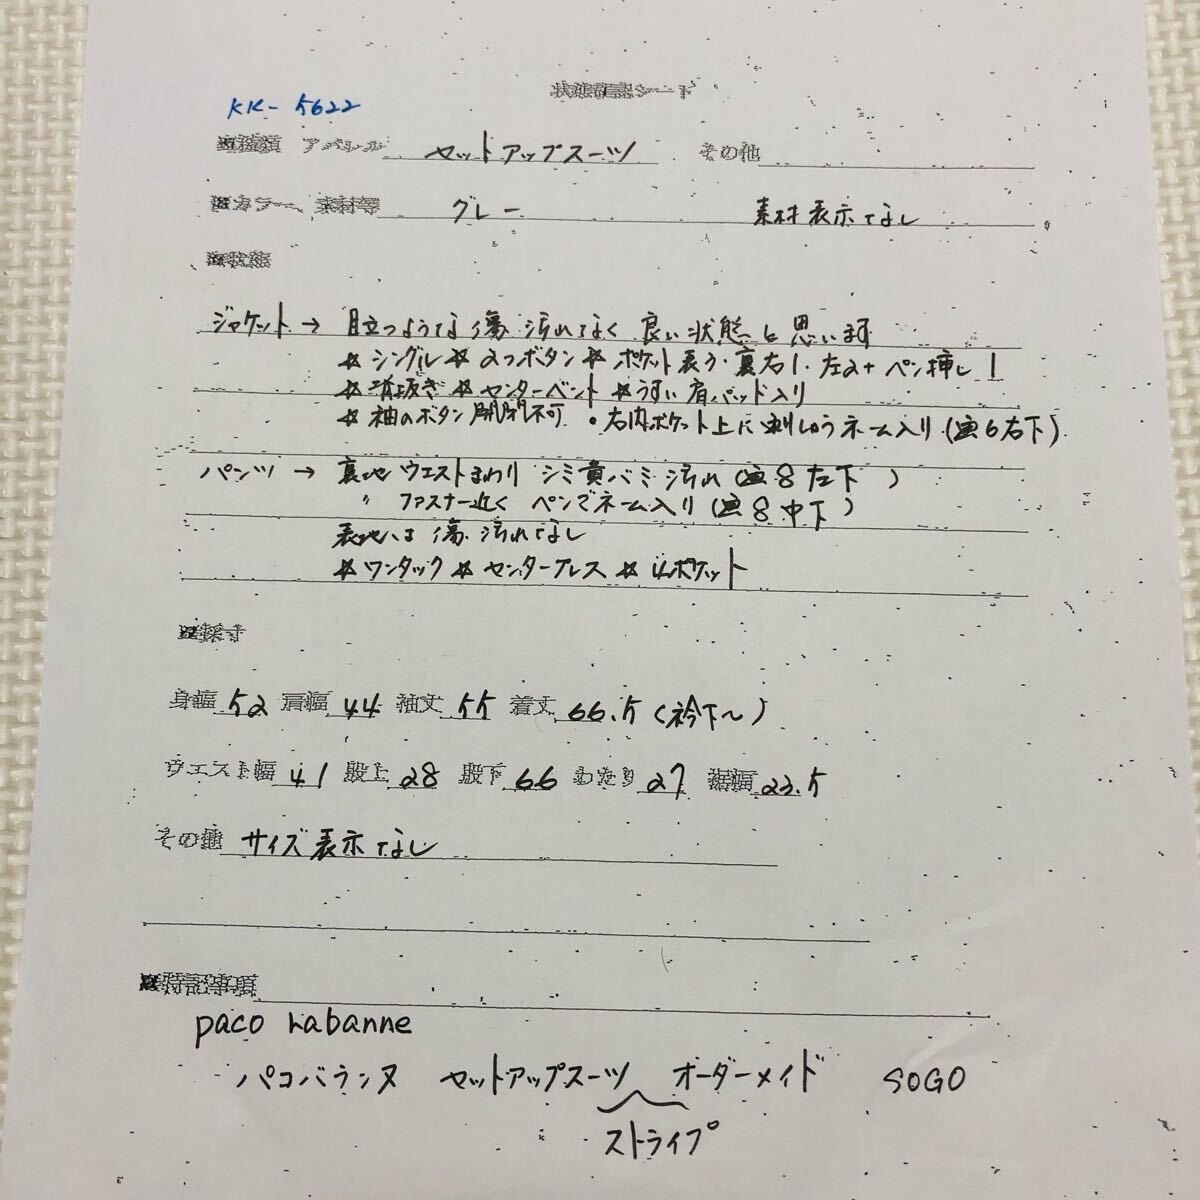 状態確認シート
KK-5622
■種類 アパレル セットアップスーツ その他
■カラー、素材等 グレー 素材表示なし
■状態
ジャケット→ 目立つような傷汚れなく良い状態と思います
☆シングル☆2つボタン☆ポケット表3・裏右1・左2+ペン挿し1
☆背抜き☆センターベント☆うすい肩パッド入り
☆袖のボタン開閉不可・右内ポケット上に刺しゅうネーム入り(画6右下)
パンツ → 裏地ウエストまわりシミ黄バミ汚れ(画8左下)
〃 ファスナー近くペンでネーム入り(画8中下)
表地は傷汚れなし
☆ワンタック☆センタープレス☆4ポケット
■採寸
身幅 52 肩幅 44 袖丈 55 着丈 66.5(衿下~)
ウエスト幅 41 股上 28 股下 66 わたり 27 裾幅 23.5
その他 サイズ表示なし
■特記事項
paco rabanne
パコバランヌ セットアップスーツ オーダーメイド SOGO
ストライプ